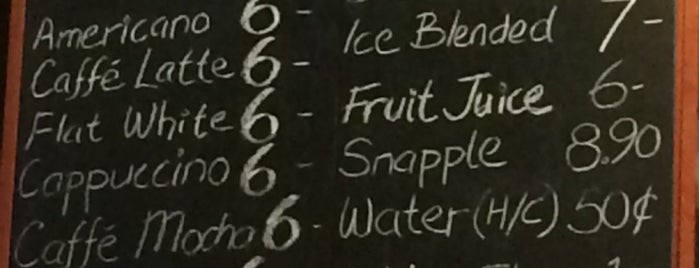 Americano 6-
Caffé Latte 6-
Flat White 6-
Cappuccino 6-
Caffé Mocha 6-
Ice Blended 7-
Fruit Juice 6-
Snapple 8.90
Water (H/C) 50¢